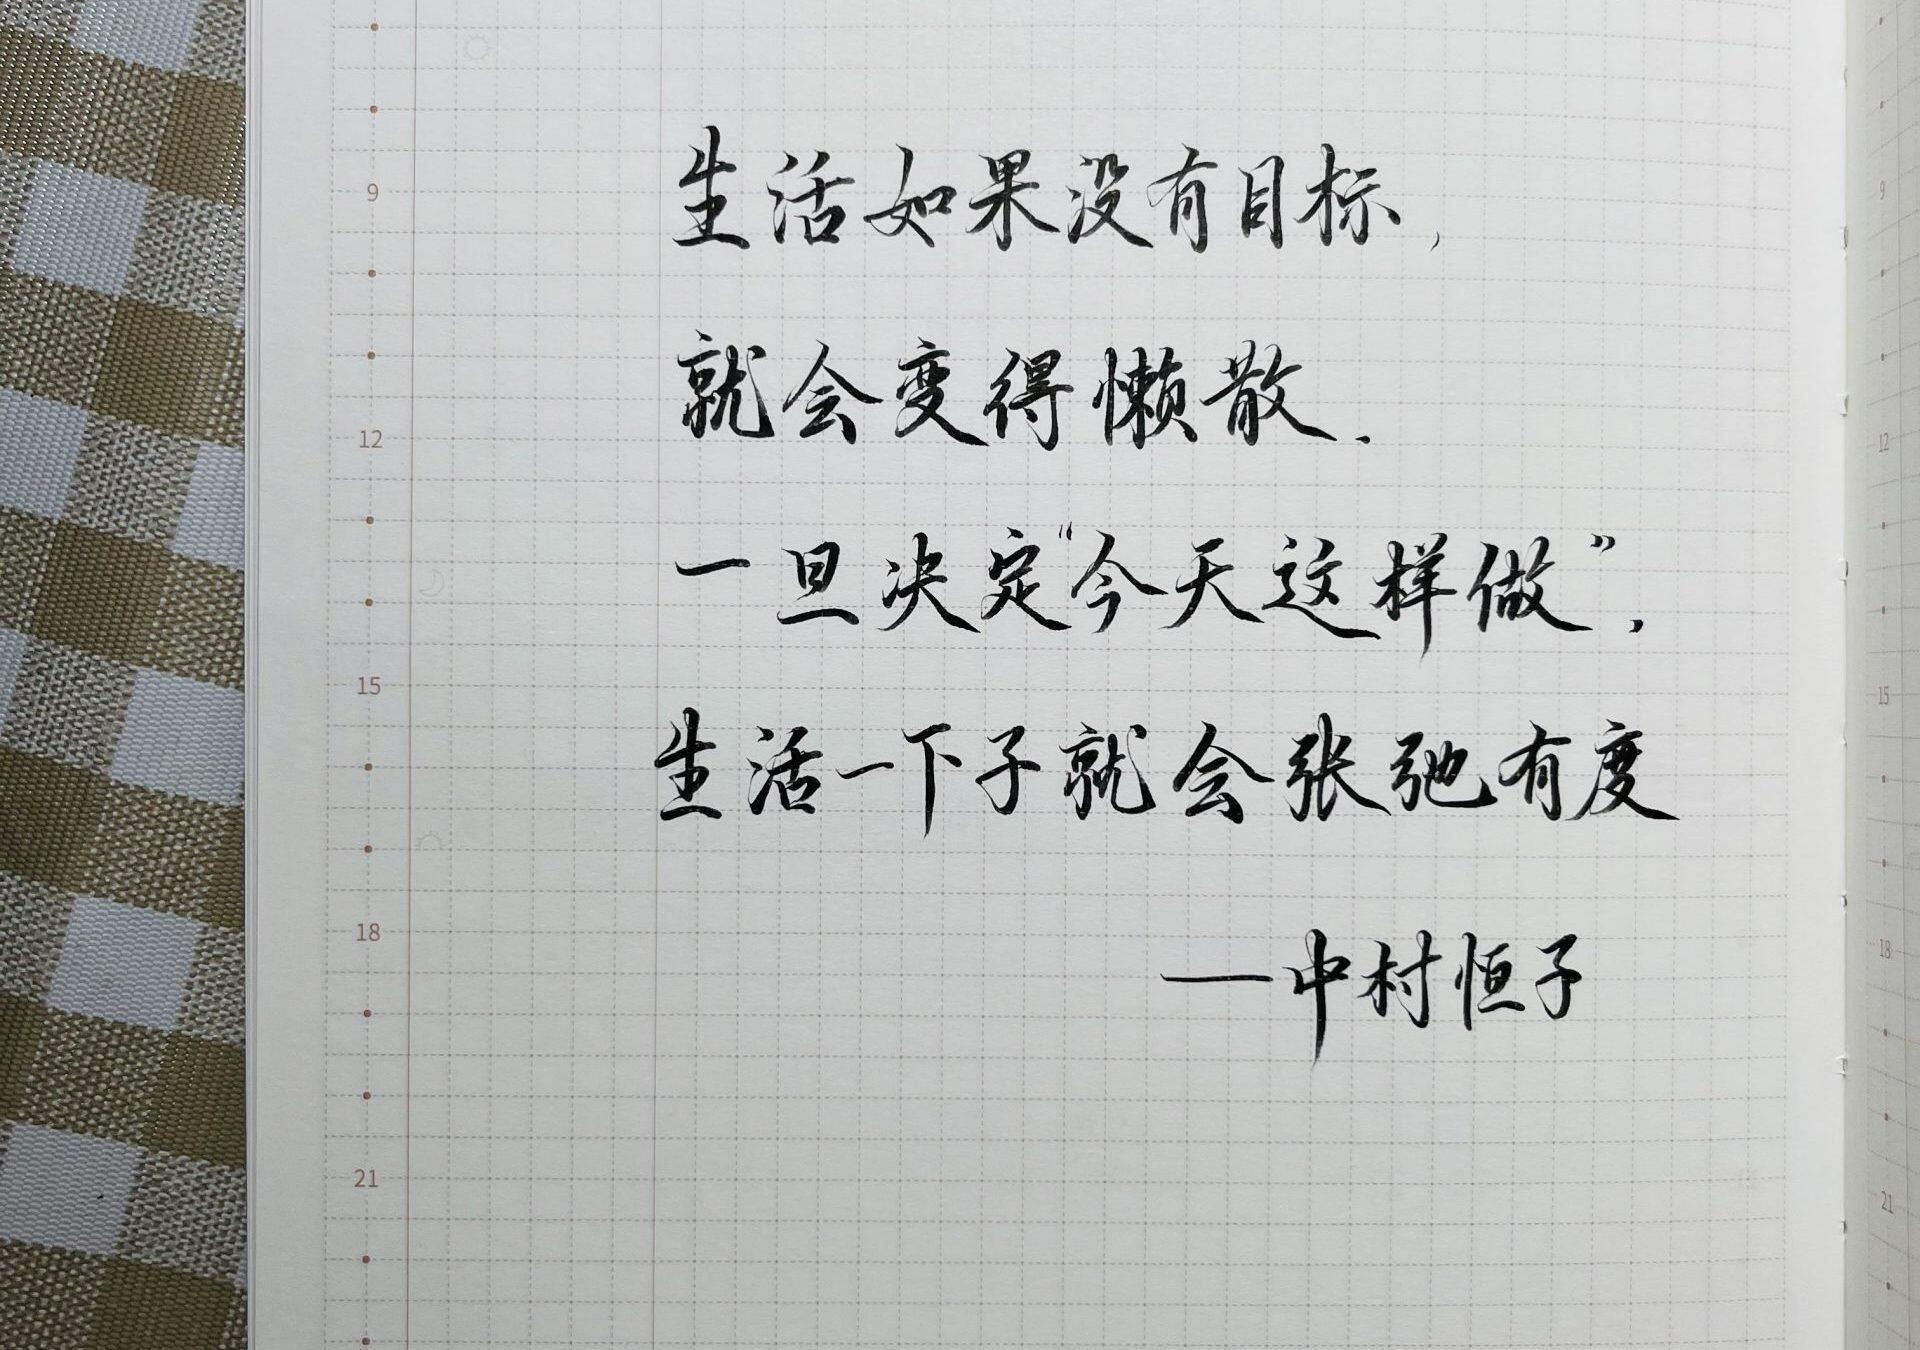 生活如果没有目标,
就会变得懒散.
一旦决定“今天这样做”,
生活一下子就会张弛有度
—中村恒子
9
12
15
18
21
9
12
15
18
21